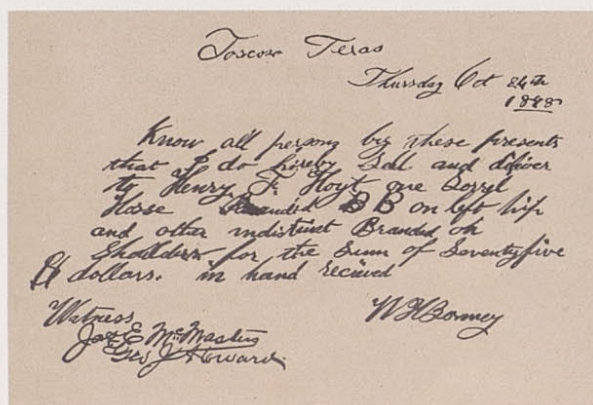 Toscosa Texas
Thursday Oct 24th
1878
Know all persons by these presents
that I do hereby Sell and diliver
to Henry F. Hoyt one Sorrel
Horse Branded B B on left hip
and other indistinct Branded on
Shoulders for the Sum of Seventyfive
dollars. in hand recieved
W H Bonney
Witness
Jas E. McMasters
Geo J Howard